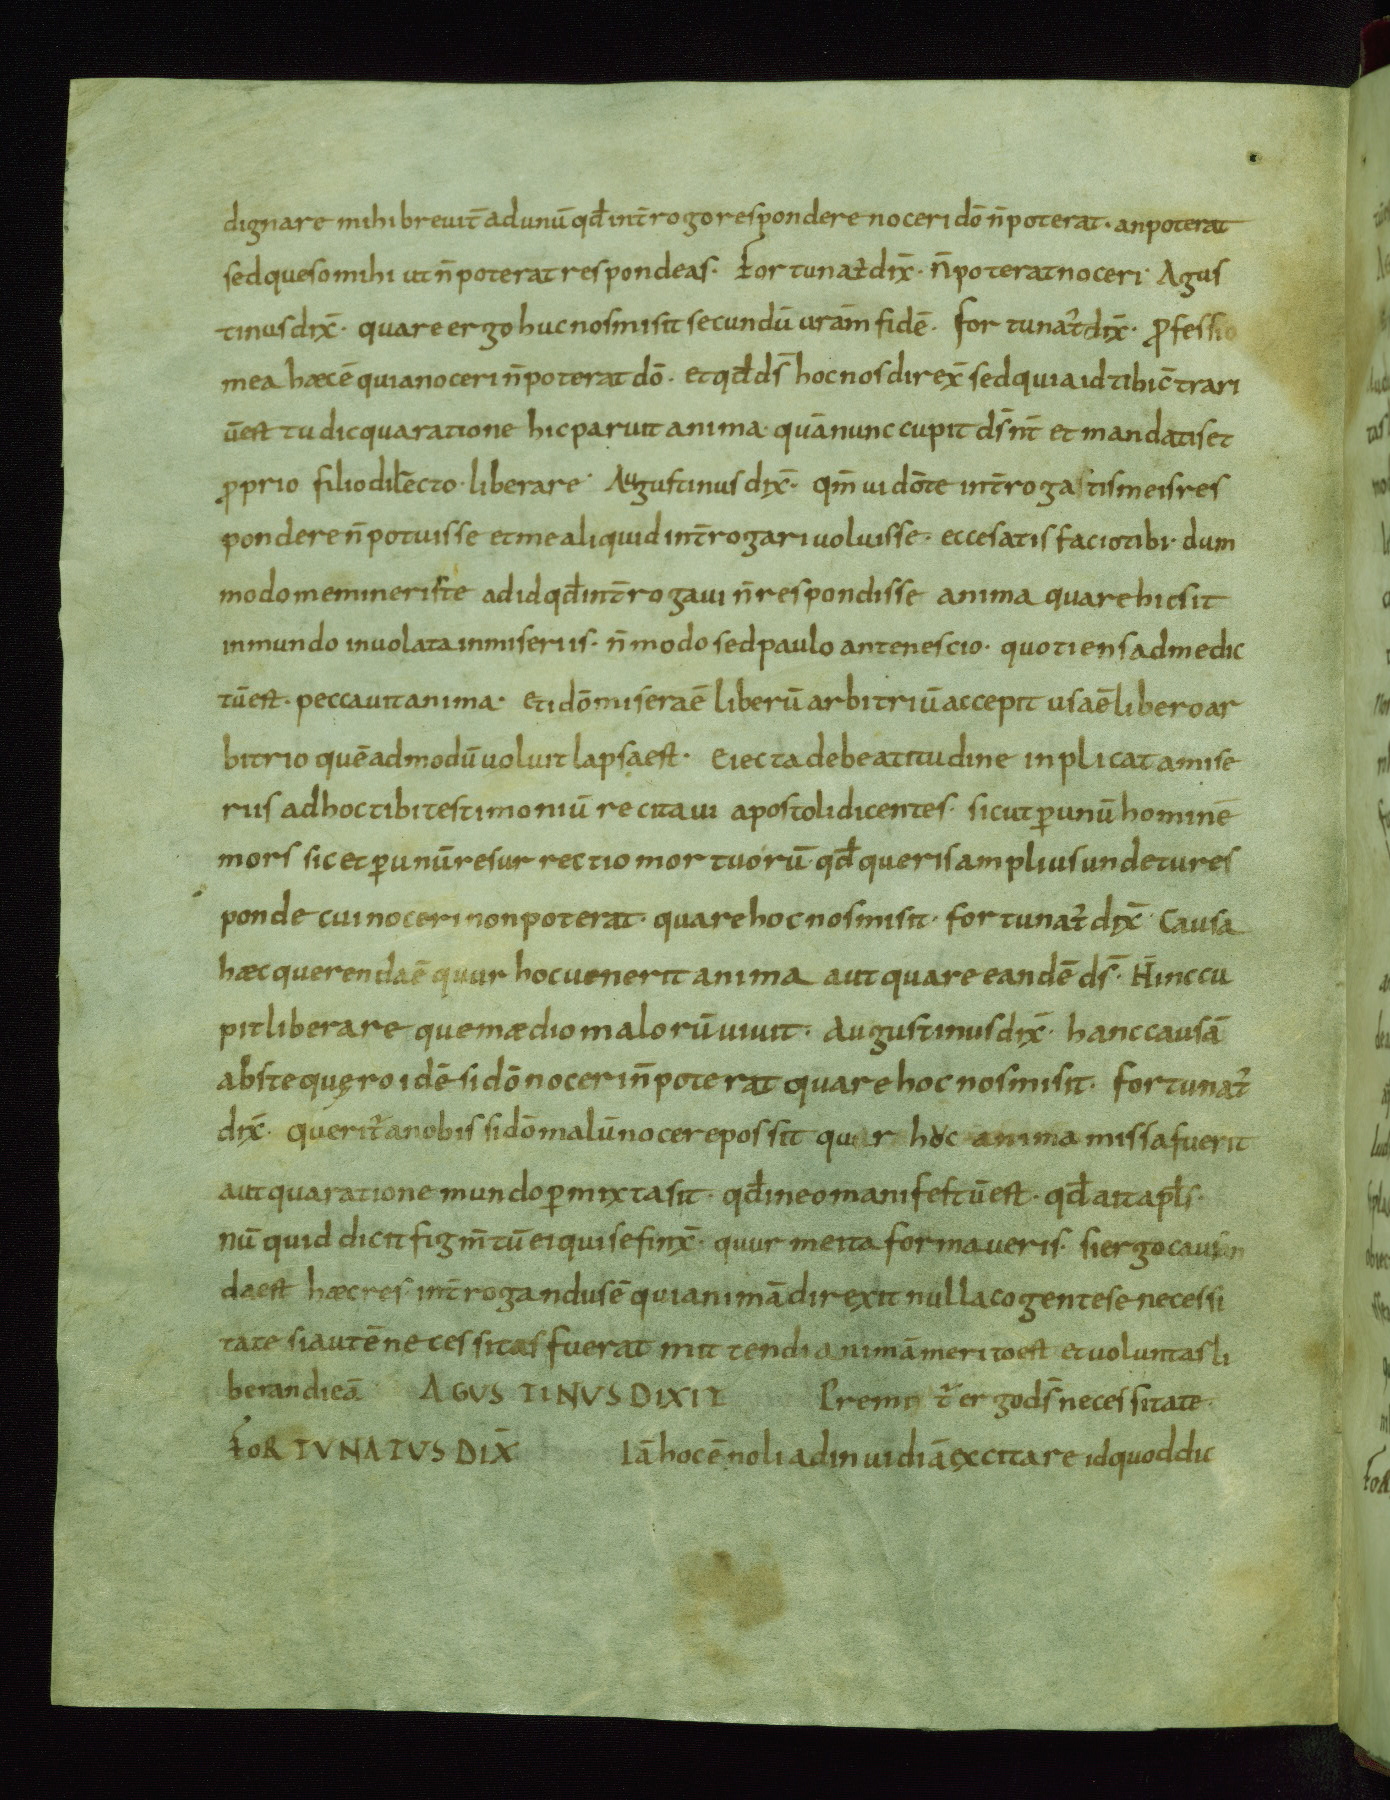 dignare mihi breuit̄ ad unū qđ int̄rogo respondere noceri dō n̄ poterat · an poterat
sed queso mihi ut n̄ poterat respondeas · Fortunat᷒ dix̄ · n̄ poterat noceri · Agus
tinus dix̄ · quare ergo huc nos misit secundū urām fidē · fortunat᷒ dix̄ · ꝓfessio
mea hæc ē quia noceri n̄ poterat dō · et qđ ds̄ hoc nos direx̄ sed quia id tibi c̄trari
ū est tu dic qua ratione hic paruit anima quā nunc cupit ds̄ nt̄ et mandatis et
ꝓprio filio dilecto liberare · Augustinus dix̄ · qm̄ uidō te int̄rogatis meis res
pondere n̄ potuisse et me aliquid int̄rogari uoluisse · ecce satisfacio tibi · dum
modo memineris te ad id qđ int̄rogaui n̄ respondisse anima quare hic sit
in mundo inuolata in miseriis · n̄ modo sed paulo ante nescio · quotiens ad me dic
tū est · peccauit anima · et idō misera ē liberū arbitriū accepit usa ē libero ar
bitrio quēadmodū uoluit lapsa est · eiecta de beatitudine inplicata mise
riis ad hoc tibi testimoniū recitaui apostoli dicentes · sicut ꝑ unū hominē
mors sic et ꝑ unū resurrectio mortuorū qđ queris amplius unde tu res
ponde cui noceri non poterat · quare hoc nos misit · fortunat᷒ dix̄ · Causa
hæc querenda ē quur hoc uenerit anima aut quare eandē ds̄ · Hinc cu
pit liberare que mædio malorū uiuit · Augustinus dix̄ · hanc causā
abs te quęro idē si dō noceri n̄ poterat quare hoc nos misit · fortunat᷒
dix̄ · querit᷒ a nobis si dō malū nocere possit quur huc anima missa fuerit
aut qua ratione mundo ꝑmixta sit · qđ in eo manifestū est · qđ ait apls̄ ·
nū quid dicit figm̄tū ei qui se finx̄ · quur me ita formaueris · si ergo causan
da est hæc res · int̄rogandus ē qui animā direxit nulla cogente se necessi
tate si autē necessitas fuerat mittendi animā merito est et uoluntas li
berandi eā AGUSTINUS DIXIT Premit᷒ ergo ds̄ necessitate ·
FORTVNATVS DIX̄ Iā hoc ē noli ad inuidiā excitare id quod dic